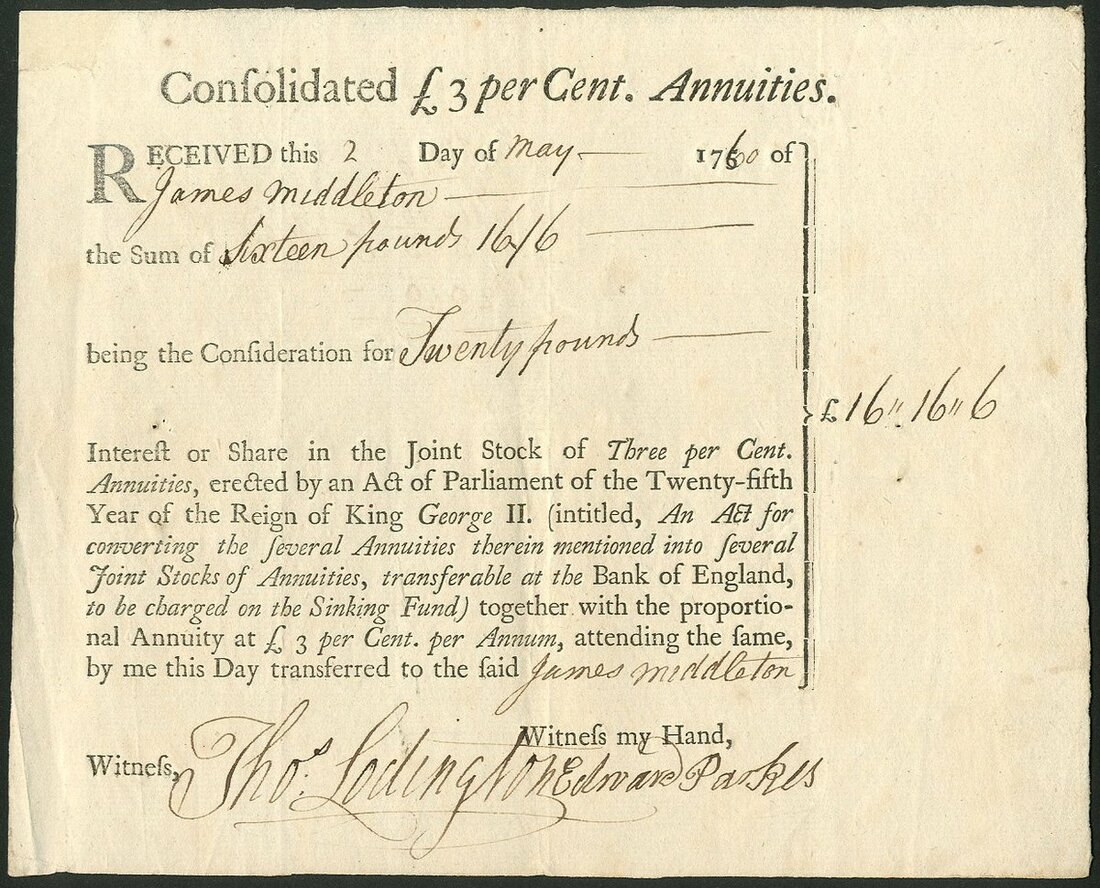 Conſolidated £ 3 per Cent. Annuities.
RECEIVED this 2 Day of May 1760 of
James Middleton
the Sum of Sixteen pounds 16/6
being the Conſideration for Twenty pounds
£ 16" 16" 6
Intereſt or Share in the Joint Stock of Three per Cent.
Annuities, erected by an Act of Parliament of the Twenty-fifth
Year of the Reign of King George II. (intitled, An Act for
converting the ſeveral Annuities therein mentioned into ſeveral
Joint Stocks of Annuities, transferable at the Bank of England,
to be charged on the Sinking Fund) together with the proportio-
nal Annuity at £ 3 per Cent. per Annum, attending the ſame,
by me this Day transferred to the ſaid James Middleton
Witneſs my Hand,
Witneſs, Thos. Lodington Edward Parkes